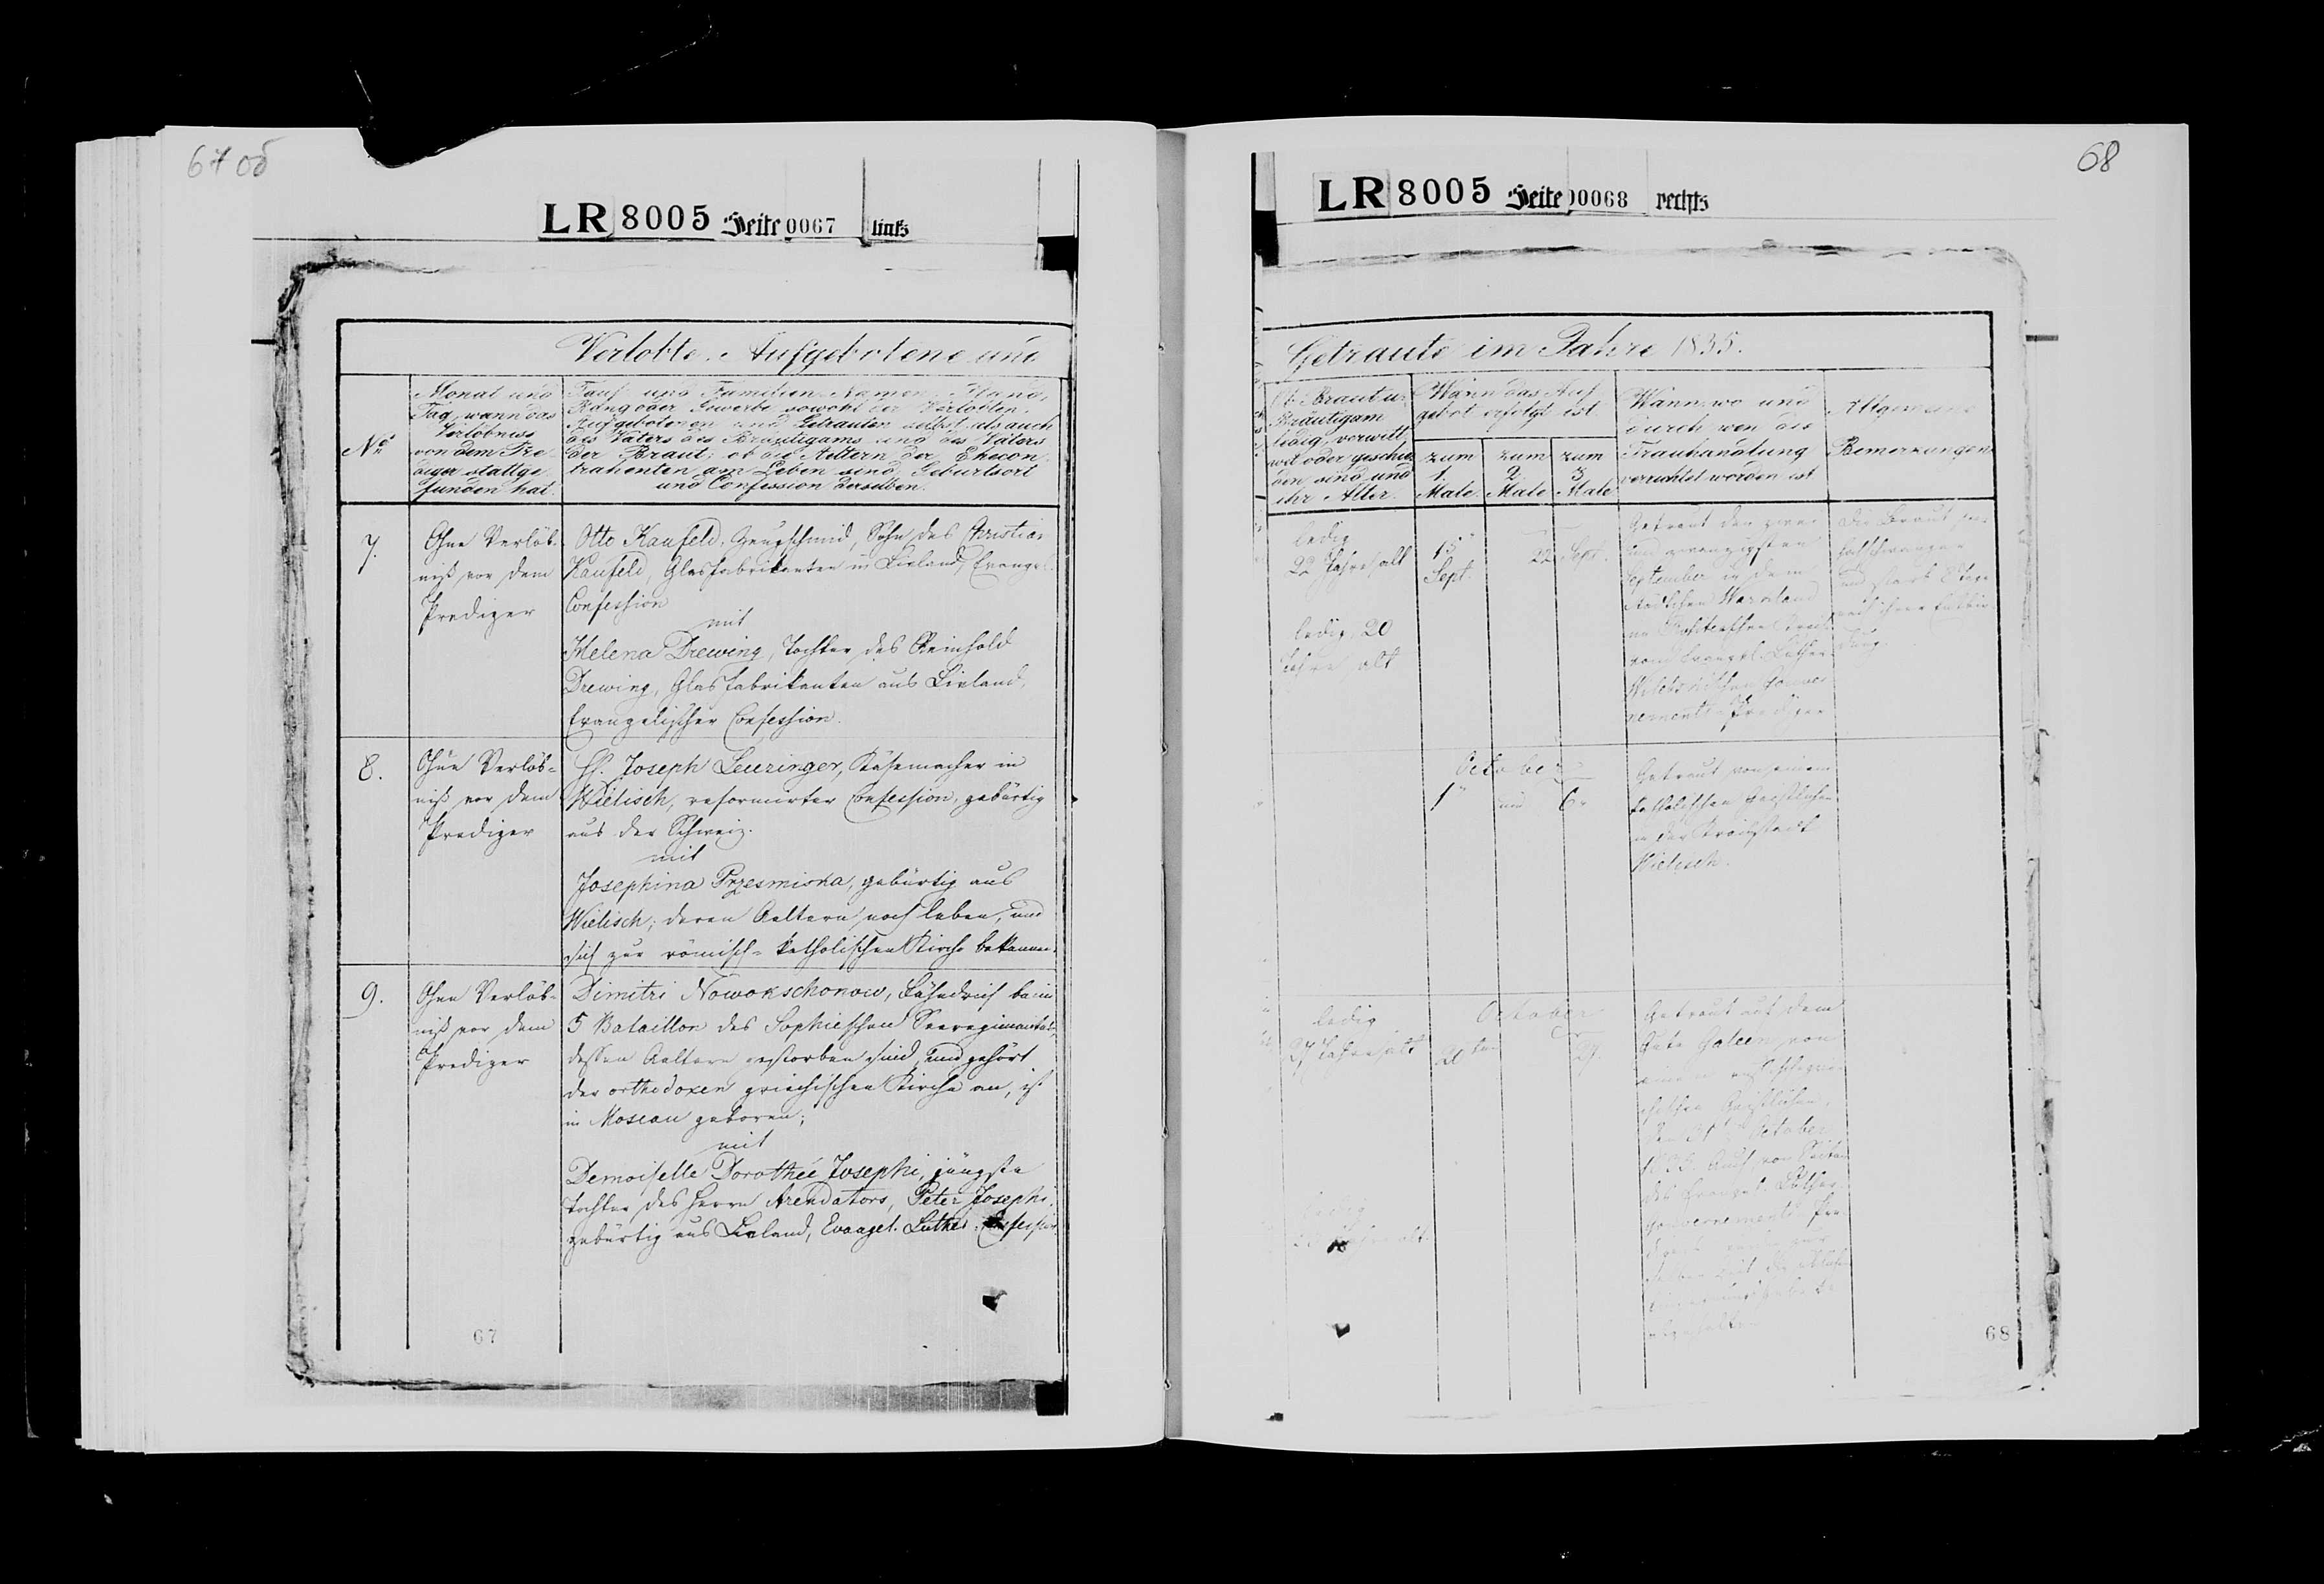 67 об
LR 8005 Seite 0067 links
Verlobte, Aufgebotene und
No
Monat und
Tag, wann das
Verlöbniss
von dem Pre-
diger stattge-
funden hat.
Tauf- und Familien-Namen, Stand,
Rang oder Gewerbe sowohl der Verlobten,
Aufgebotenen und Getrauten selbst, als auch
des Vaters des Bräutigams und des Vaters
der Braut; ob die Aeltern der Ehecon-
trahenten am Leben sind, Geburtsort
und Confession derselben.
7.
Ohne Verlöb-
niß vor dem
Prediger
Otto Kaufeld, Zeugschmid, Sohn des Christian
Kaufeld, Glasfabrikanten in Livland, Evangel.
Confession
mit
Helena Drewing, Tochter des Reinhold
Drewing, Glasfabrikanten aus Livland,
Evangelischer Confession.
8.
Ohne Verlöb-
niß vor dem
Prediger
H. Joseph Leuzinger, Käsemacher in
Wielisch, reformirter Confession, gebürtig
aus der Schweiz.
mit
Josephina Przesmiska, gebürtig aus
Wielisch; deren Aeltern noch leben, und
sich zur römisch-katholischen Kirche bekennen.
9.
Ohne Verlöb-
niß vor dem
Prediger
Dimitri Nowokschonow, Fähndrich beim
5 Bataillon des Sophieschen Seeregiments,
dessen Aeltern gestorben sind, und gehört
der orthodoxen griechischen Kirche an, ist
in Moscau geboren;
mit
Demoiselle Dorothée Josephi, jüngste
Tochter des Herrn Arendators, Peter Josephi,
gebürtig aus Livland, Evangel. Luther. Confession.
67
68
LR 8005 Seite 00068 rechts
Getraute im Jahre 1835.
Ob Braut u.
Bräutigam
ledig, verwitt-
wet oder geschie-
den sind und
ihr Alter.
Wann das Auf-
gebot erfolgt ist.
zum
1.
Male.
zum
2.
Male
zum
3.
Male
Wann, wo und
durch wen die
Trauhandlung
verrichtet worden ist
Allgemeine
Bemerkungen
ledig
22 Jahre alt
ledig, 20
Jahre alt
15
Sept.
22 Sept.
Getraut den zwei
und zwanzigsten
September in dem
Warnland
vom Evangel. Luther.
Witebskischen Gouver-
nements-Prediger
Die Braut
hochschwanger
und 8 Tage
nach ihrer Entbin-
dung.
October
1 und 6
Getraut von einem
katholischen Geistlichen
in der Kreisstadt
Wielisch.
ledig
27 Jahre alt
October
20ten
27.
Getraut auf dem
Gute Galeen von
einem
Geistlichen,
den 31 October
1835. Auch von Seiten
des Evangel. Luther.
Gouvernements-Pre-
ledig
Jahre alt.
68